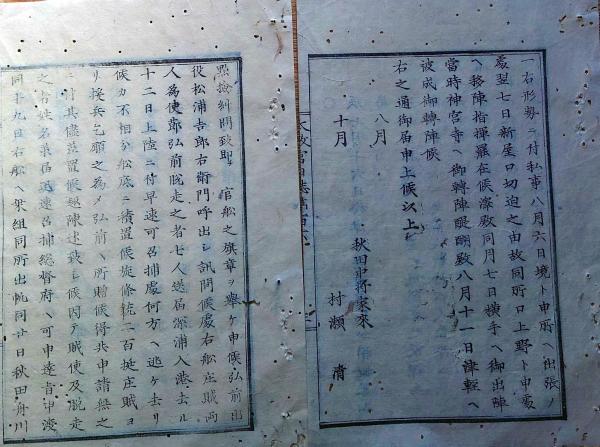 一右形勢ニ付私事八月六日境ト申所ヘ出張ノ
處翌七日新屋口切迫之由故同所口上野ト申處
ヘ移陣指揮罷在候澤殿同月七日横手ヘ御出陣
當時神宮寺ヘ御轉陣醍醐殿八月十一日津輕ヘ
被成御轉陣候
右之通御届申上候以上
八月
秋田中将家來
十月
村瀬 清
點撿糾問致耶 官舩之旗章ヲ擧ケ申候弘前出
役松浦吉郎右衛門呼出シ訊問候處右舩庄賊両
人為使節弘前脱走之者七人送届深浦入港去ル
十二日上陸ニ付早速可召捕處何方ヘ逃ケ去リ
候カ不相分舩底ニ積置候旋條銃二百挺庄賊ヨ
リ援兵乞願之為メ弘前ヘ所贈候得共申請無之
ニ付其儘差置候趣陳述致シ候因テ賊使及脱走
之者姓名承届迅速召捕総督府ヘ可申達旨申渡
同十九日右舩ヘ乗組同所出帆同廿日秋田舟川